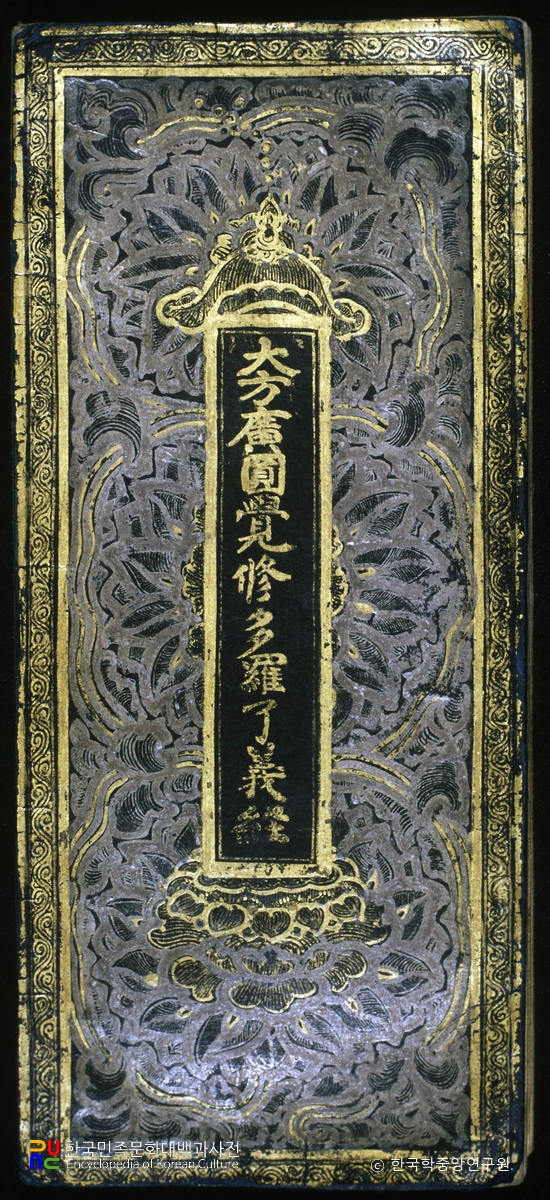 大方廣圎覺修多羅了義經
한국민족문화대백과사전
Encyclopedia of Korean Culture
© 한국학중앙연구원